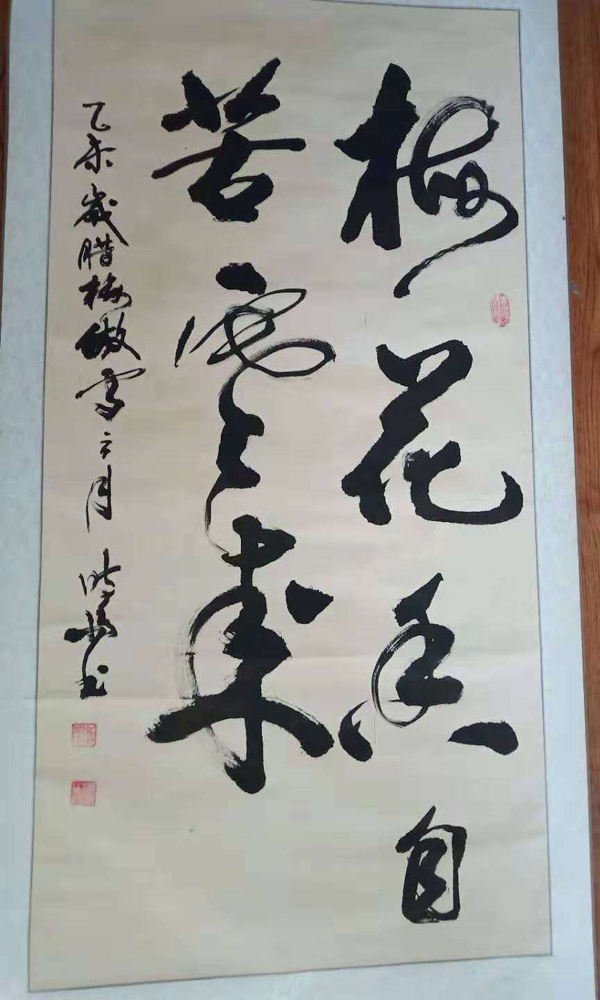 梅花香自
苦寒来
乙未岁腊梅傲雪之月 书